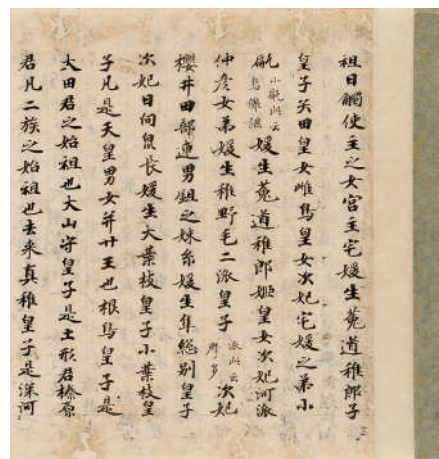 祖日觸使主之女宮主宅媛生菟道稚郎子
皇子矢田皇女雌鳥皇女次妃宅媛之弟小
甂小甂此云烏儺謎媛生菟道稚郎姬皇女次妃河派
仲彦女弟媛生稚野毛二派皇子派此云摩多次妃
櫻井田部連男鉏之妹糸媛生隼総別皇子
次妃日向泉長媛生大葉枝皇子小葉枝皇
子凡是天皇男女并廿王也根鳥皇子是
大田君之始祖也大山守皇子是土形君榛原
君凡二族之始祖也去来真稚皇子是深河